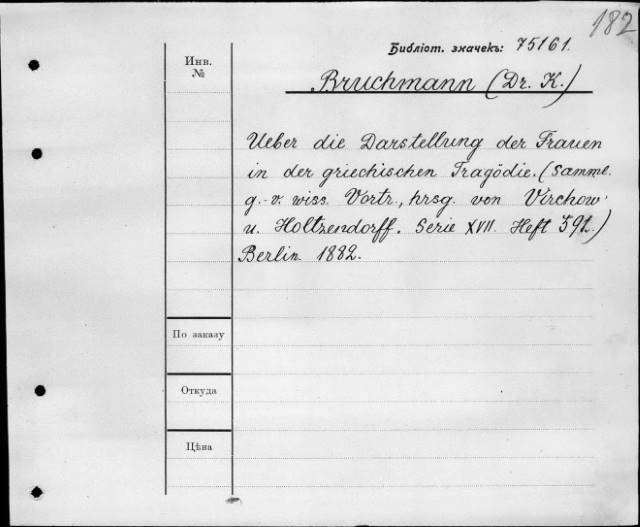 182
Библіот. значекъ: 75161.
Инв.
№
Bruchmann (Dr. K.)
Ueber die Darstellung der Frauen
in der griechischen Tragödie. (Samml.
g. v. wiss. Vortr., hrsg. von Virchow
u. Holtzendorff. Serie XVII. Heft 391.)
Berlin 1882.
По заказу
Откуда
Цѣна